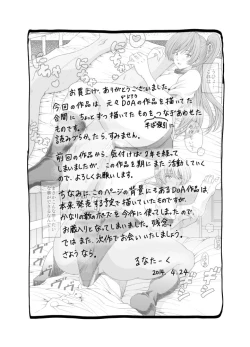 お買上げ、ありがとうございました。
今回の作品は、元々DOAの作品を描いてた
合間にちょっとずつ描いてたものをつなぎあわせた
ものです。
読みづらかったら、すみません。
前回の作品から、気付けば2年も経って
しまいましたが、この両日を期にまた活動していく
ので、よろしくお願いします。
ちなみに、このページの背景にもあるDOA作品は
本来、発売する予定で描いていたものですが、
かなりの数のポーズを今作に使ってしまったので、
お蔵入りとなってしまいました。残念。
ではまた、次作でお会いいたしましょう。
さようなら。
るなたーく
2014. 4. 24